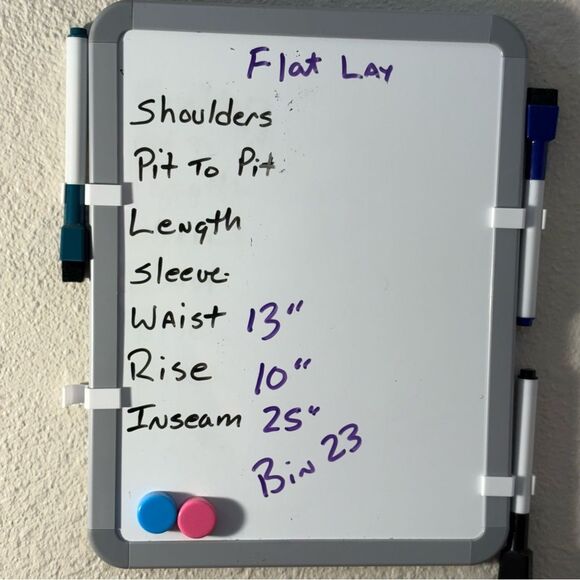 Flat Lay
Shoulders
Pit To Pit
Length
Sleeve
Waist 13"
Rise 10"
Inseam 25"
Bin 23